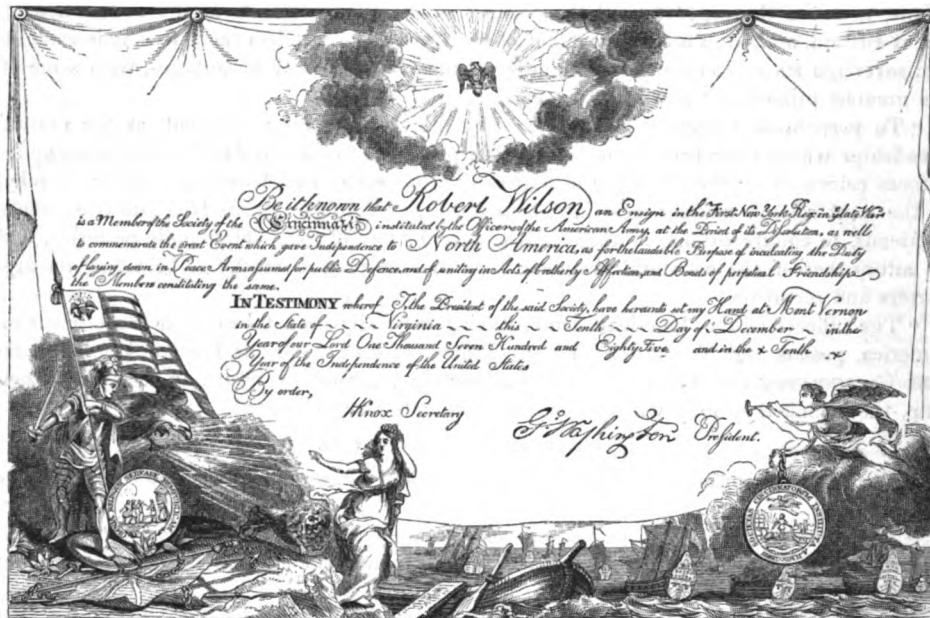 Be it known that Robert Wilson an Ensign in the First New York Reg. in y.e late War
is a Member of the Society of the Cincinnati instituted by the Officers of the American Army, at the Period of its Dissolution, as well
to commemorate the great Event which gave Independence to North America, as for the laudable Purpose of inculcating the Duty
of laying down in Peace Arms assumed for public Defence, and of uniting in Acts of brotherly Affection, and Bonds of perpetual Friendship
the Members constituting the same.
IN TESTIMONY whereof I, the President of the said Society, have hereunto set my Hand at Mount Vernon
in the State of Virginia this Tenth Day of December in the
Year of our Lord One Thousand Seven Hundred and Eighty Five and in the Tenth
Year of the Independence of the United States
By order,
HKnox Secretary
G.o Washington President.
OMNIA SERVARE REMPUBLICAM